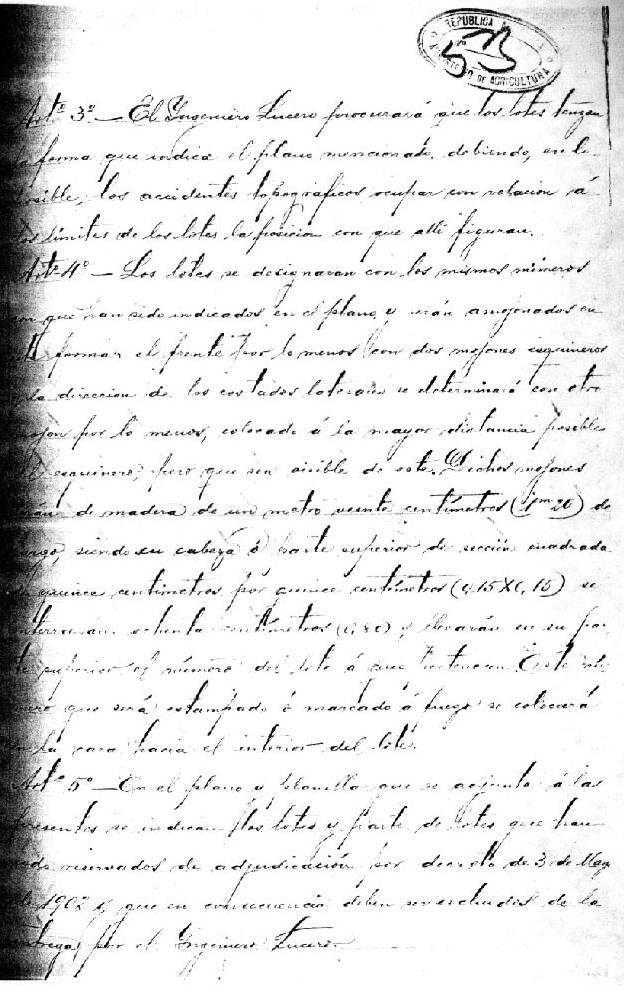 REPUBLICA
MINISTERIO DE AGRICULTURA
53
Artº 3º — El Ingeniero Lucero procurará que los lotes tengan
la forma que indica el plano mencionado, debiendo, en lo
posible, los accidentes topograficos ocupar con relacion á
los límites de los lotes la posicion con que allí figuran.
Artº 4º — Los lotes se designaran con los mismos números
con que han sido indicados en el plano y serán amojonados en
formar el frente por lo menos con dos mojones esquineros
y la direccion de los costados laterales se determinará con otro
mojon por lo menos, colocado á la mayor distancia posible
esquinero, pero que sea visible de este. Dichos mojones
serán de madera de un metro veinte centímetros (1m 20) de
largo, siendo su cabeza ó parte superior de sección cuadrada
de quince centimetros por quince centímetros (0,15 X 0,15) se
enterrarán ochenta centímetros (0,80) y llevarán en su par
te superior el número del lote á que pertenecen. Este nú
mero que será estampado ó marcado á fuego se colocará
en la cara hacia el interior del lote.
Artº 5º — En el plano y planilla que se adjunta á las
presentes se indican los lotes y parte de lotes que han
sido reservados de adjudicación por decreto de 3 de Mayo
de 1902 y que en consecuencia deben ser excluidos de la
entrega por el Ingeniero Lucero.